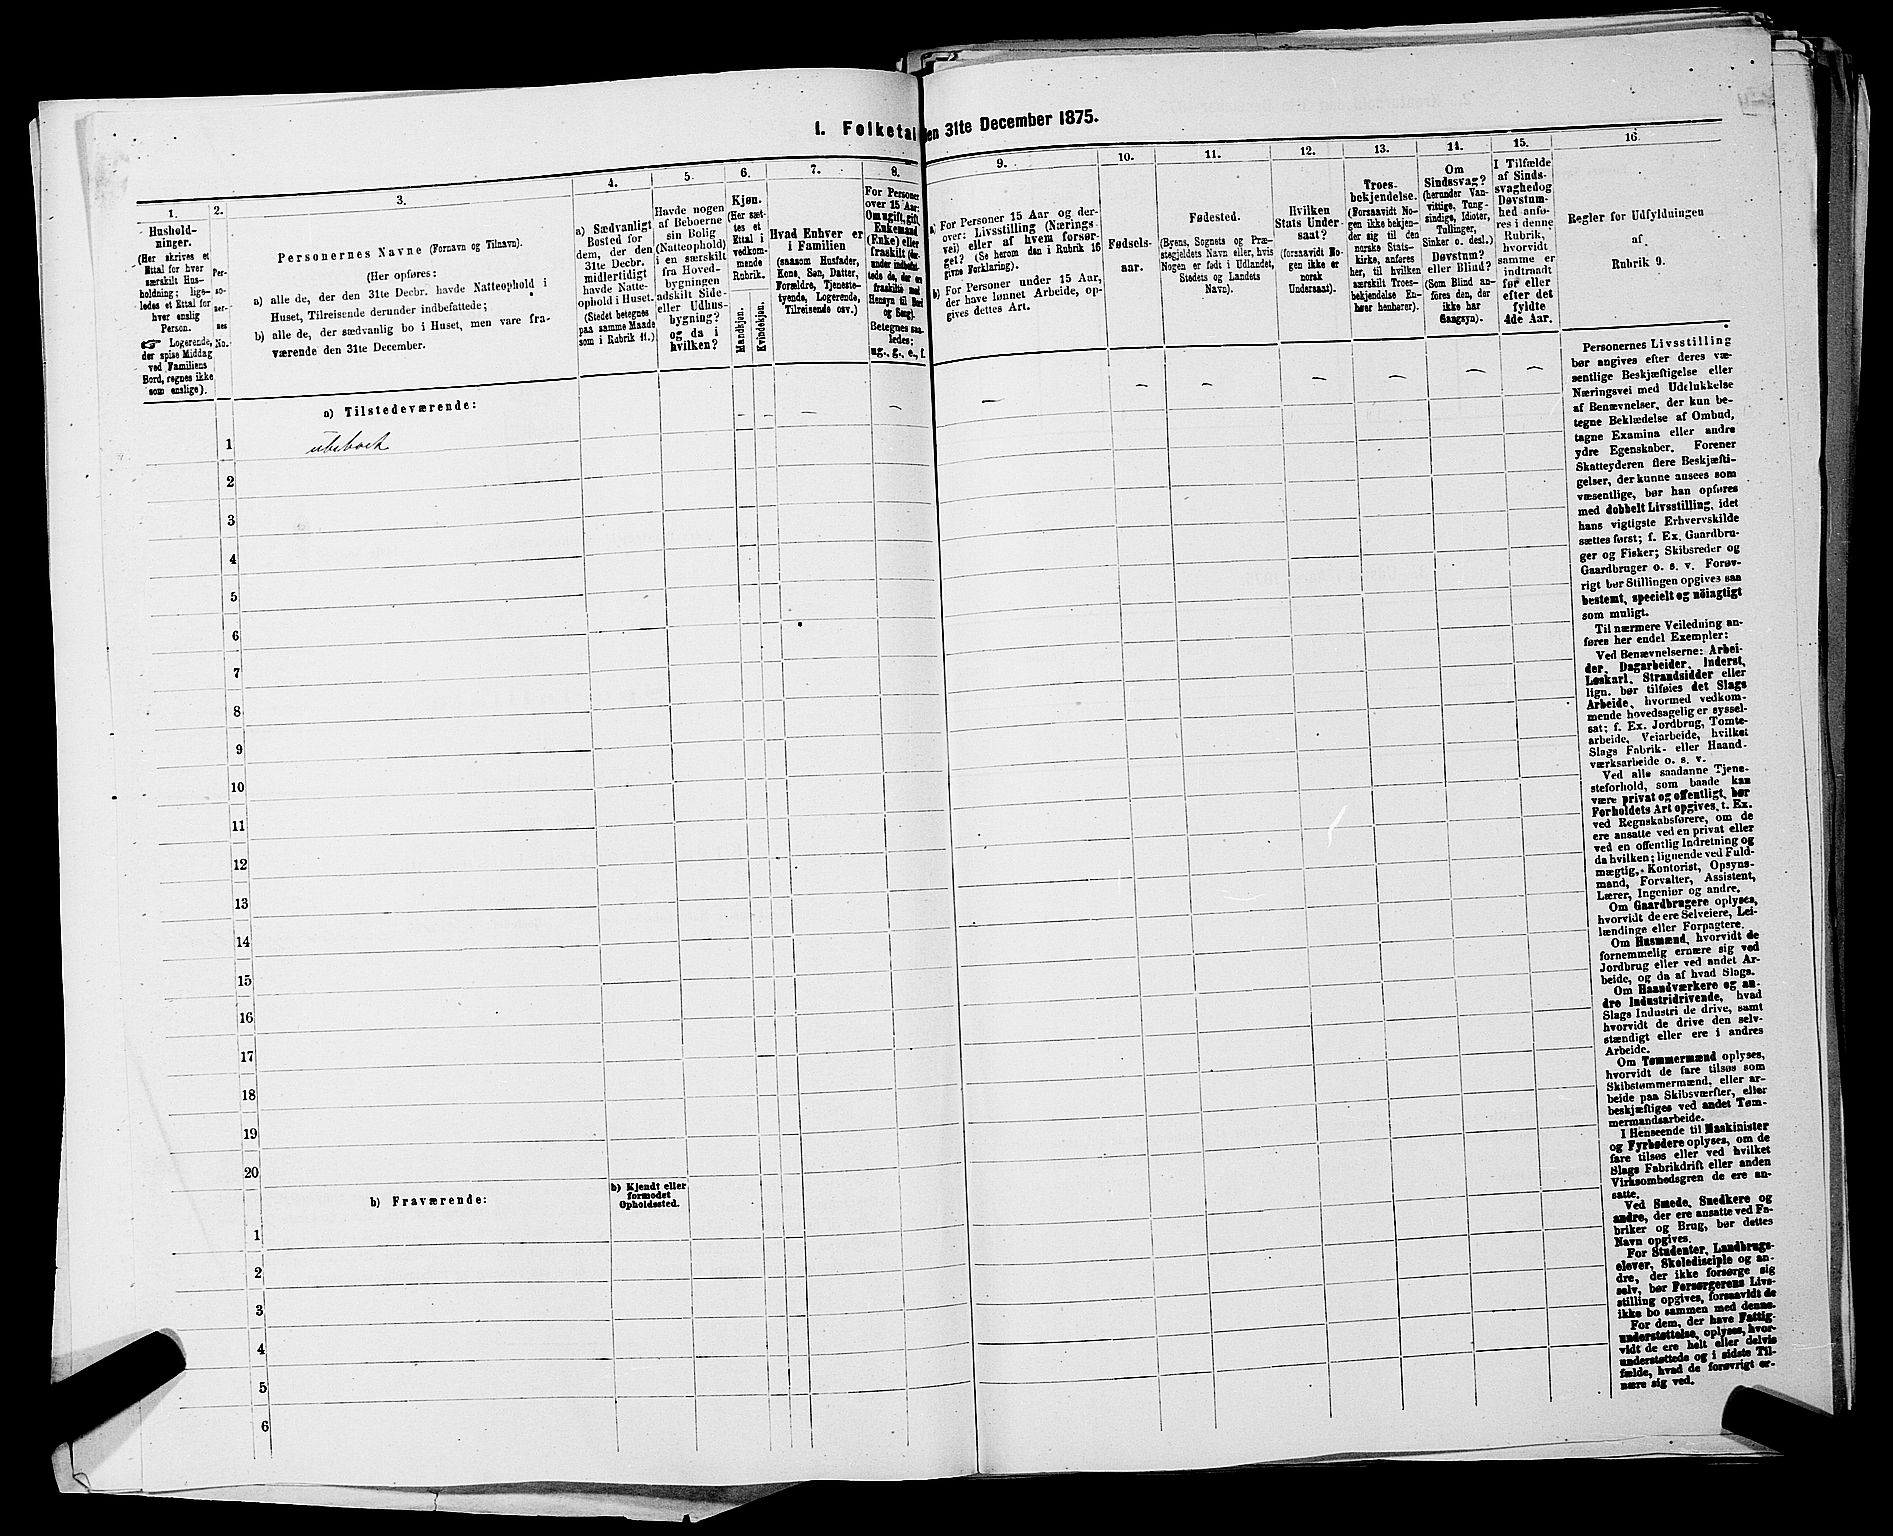 I. Folketal
den 31te December 1875.
1.
Hushold-
ninger.
(Her skrives et
Ettal for hver
særskilt Hus-
holdning; lige-
ledes et Ettal for
hver enslig
Person.
☞ Logerende,
der spise Middag
ved Familiens
Bord, regnes ikke
som enslige).
2.
Per-
so-
ner-
nes
No.
3.
Personernes Navne (Fornavn og Tilnavn).
(Her opføres:
a) alle de, der den 31te Decbr. havde Natteophold i
Huset, Tilreisende derunder indbefattede;
b) alle de, der sædvanlig bo i Huset, men vare fra-
værende den 31te December.
4.
a) Sædvanligt
Bosted for
dem, der den
31te Decbr.
midlertidigt
havde Natte-
ophold i Huset.
(Stedet betegnes
paa samme Maade
som i Rubrik 11.)
5.
Havde nogen
af Beboerne
sin Bolig
(Natteophold)
i en særskilt
fra Hoved-
bygningen
adskilt Side-
eller Udhus-
bygning?
og da i
hvilken?
6.
Kjøn.
(Her sæt-
tes et
Ettal i
vedkom-
mende
Rubrik.
Mandkjøn.
Kvindekjøn.
7.
Hvad Enhver er
i Familien
(saasom Husfader,
Kone, Søn, Datter,
Forældre, Tjeneste-
tyende, Logerende,
Tilreisende osv.)
8.
For Personer
over 15 Aar:
Om ugift, gift,
Enkemand
(Enke) eller
fraskilt (der-
under indbefat-
tede de, der ere
fraskilte med
Hensyn til Bord
og Seng).
Betegnes saa-
ledes:
ug., g., e., f.
9.
a) For Personer 15 Aar og der-
over: Livsstilling (Nærings-
vei) eller af hvem forsør-
get? (Se herom den i Rubrik 16
givne Forklaring).
b) For Personer under 15 Aar,
der have lønnet Arbeide, op-
gives dettes Art.
10.
Fødsels-
aar.
11.
Fødested.
(Byens, Sognets og Præ-
stegjeldets Navn eller, hvis
Nogen er født i Udlandet,
Stedets og Landets
Navn).
12.
Hvilken
Stats Under-
saat?
(forsaavidt No-
gen ikke er
norsk
Undersaat).
13.
Troes-
bekjendelse.
(Forsaavidt No-
gen ikke bekjen-
der sig til den
norske Stats-
kirke, anføres
her, til hvilken
særskilt Troes-
bekjendelse En-
hver henhører).
14.
Om
Sindssvag?
(herunder Van-
vittige, Tung-
sindige, Idioter,
Tullinger,
Sinker o. desl.)
Døvstum?
eller Blind?
(Som Blind an-
føres den, der
ikke har
Gangsyn).
15.
I Tilfælde
af Sinds-
svaghed og
Døvstum-
hed anfø-
res i denne
Rubrik,
hvorvidt
samme er
indtraadt
før eller
efter det
fyldte
4de Aar.
16.
Regler for Udfyldningen
af
Rubrik 9.
a) Tilstedeværende:
1
ubeboet
2
3
4
5
6
7
8
9
10
11
12
13
14
15
16
17
18
19
20
b) Fraværende:
b) Kjendt eller
formodet
Opholdssted.
1
2
3
4
5
6
Personernes Livsstilling
bør angives efter deres væ-
sentlige Beskjæftigelse eller
Næringsvei med Udelukkelse
af Benævnelser, der kun be-
tegne Beklædelse af Ombud,
tagne Examina eller andre
ydre Egenskaber. Forener
Skatteyderen flere Beskjæfti-
gelser, der kunne ansees som
væsentlige, bør han opføres
med dobbelt Livsstilling, idet
hans vigtigste Erhvervskilde
sættes først; f. Ex. Gaardbru-
ger og Fisker; Skibsreder og
Gaardbruger o. s. v. Forøv-
rigt bør Stillingen opgives saa
bestemt, specielt og nöiagtigt
som muligt.
Til nærmere Veiledning an-
føres her endel Exempler:
Ved Benævnelserne: Arbei-
der, Dagarbeider, Inderst,
Løskarl, Strandsidder eller
lign. bør tilføies det Slags
Arbeide, hvormed vedkom-
mende hovedsagelig er syssel-
sat; f. Ex. Jordbrug, Tomte-
arbeide, Veiarbeide, hvilket
Slags Fabrik- eller Haand-
værksarbeide o. s. v.
Ved alle saadanne Tjene-
steforhold, som baade kan
være privat og offentligt, bør
Forholdets Art opgives, t. Ex.
ved Regnskabsførere, om de
ere ansatte ved en privat eller
ved en offentlig Indretning og
da hvilken; lignende ved Fuld-
mægtig, Kontorist, Opsyns-
mand, Forvalter, Assistent,
Lærer, Ingeniør og andre.
Om Gaardbrugere oplyses,
hvorvidt de ere Selveiere, Lei-
lændinge eller Forpagtere.
Om Husmænd, hvorvidt de
fornemmelig ernære sig ved
Jordbrug eller ved andet Ar-
beide, og da af hvad Slags.
Om Haandværkere og an-
dre Industridrivende, hvad
Slags Industri de drive, samt
hvorvidt de drive den selv-
stændigt eller ere i andres
Arbeide.
Om Tømmermænd oplyses,
hvorvidt de fare tilsøs som
Skibstømmermænd, eller ar-
beide paa Skibsværfter, eller
beskjæftiges ved andet Tøm-
mermandsarbeide.
I Henseende til Maskinister
og Fyrbødere oplyses, om de
fare tilsøs eller ved hvilket
Slags Fabrikdrift eller anden
Virksomhedsgren de ere an-
satte.
Ved Smede, Snedkere og
andre, der ere ansatte ved Fa-
briker og Brug, bør dettes
Navn opgives.
For Studenter, Landbrugs-
elever, Skoledisciple og an-
dre, der ikke forsørge sig
selv, bør Forsørgerens Livs-
stilling opgives, forsaavidt de
ikke bo sammen med denne.
For dem, der have Fattig-
understøttelse, oplyses, hvor-
vidt de ere helt eller delvis
understøttede og i sidste Til-
fælde, hvad de forøvrigt er-
nære sig ved.